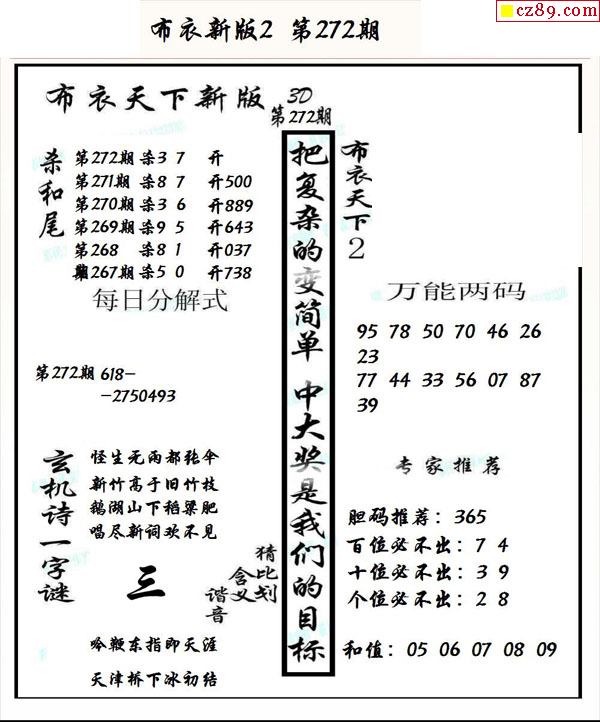 cz89.com
布衣新版2 第272期
布衣天下新版 3D
第272期
杀和尾
第272期 杀3 7 开
第271期 杀8 7 开500
第270期 杀3 6 开889
第269期 杀9 5 开643
第268 杀8 1 开037
第267期 杀5 0 开738
每日分解式
第272期 618-
-2750493
玄机诗一字谜
怪生无雨都张伞
新竹高于旧竹枝
鹅湖山下稻粱肥
唱尽新词欢不见
三
猜比划
含义
谐音
吟鞭东指即天涯
天津桥下冰初结
把复杂的变简单 中大奖是我们的目标
布衣天下2
万能两码
95 78 50 70 46 26
23
77 44 33 56 07 87
39
专家推荐
胆码推荐：365
百位必不出：7 4
十位必不出：3 9
个位必不出：2 8
和值：05 06 07 08 09